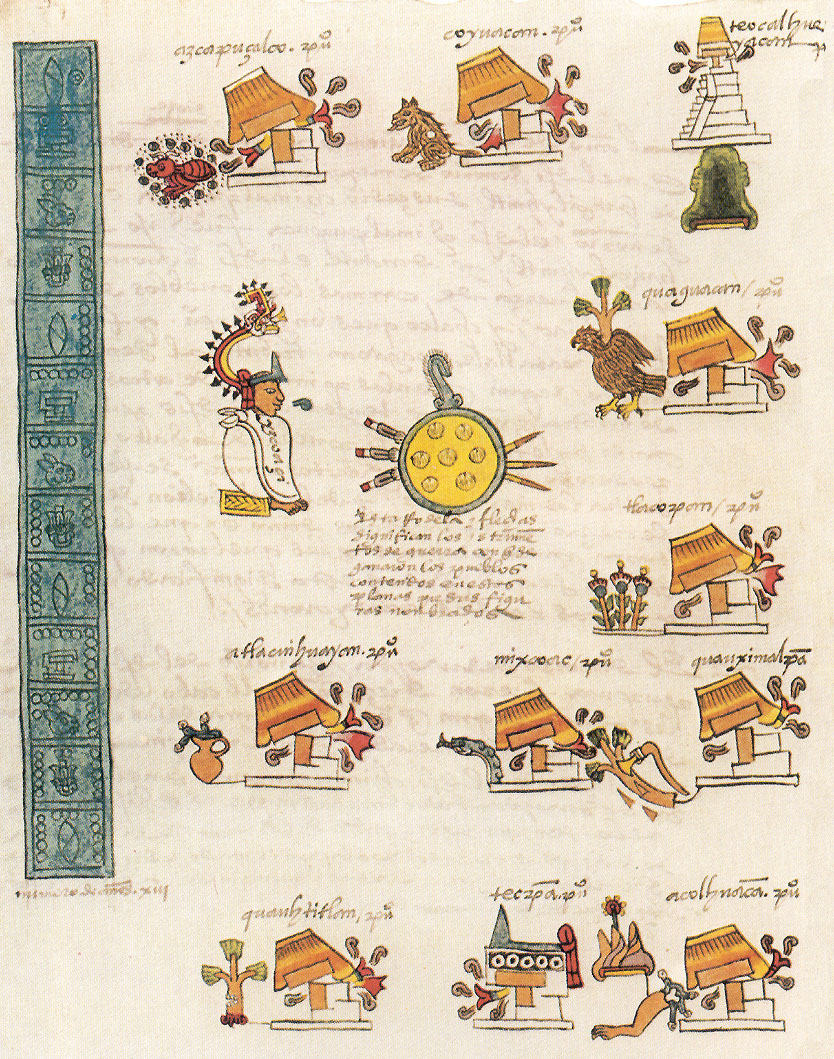 azcapuçalco. puº
coyuacan. puº
teocalhue
yacan
quaguacan / puº
tlacopan / puº
Esta rrodela, y flechas
significan los ystrume
tos de guerra con q̄ se
ganaron los pueblos
contenidos en estas
planas por sus figu
ras nonbrados
atlacuihuayan. puº
mixcoac / puº
quauximalpā
numero de años. xiii
quauhtitlan / puº
tecpā. puº
acolhuacā. puº